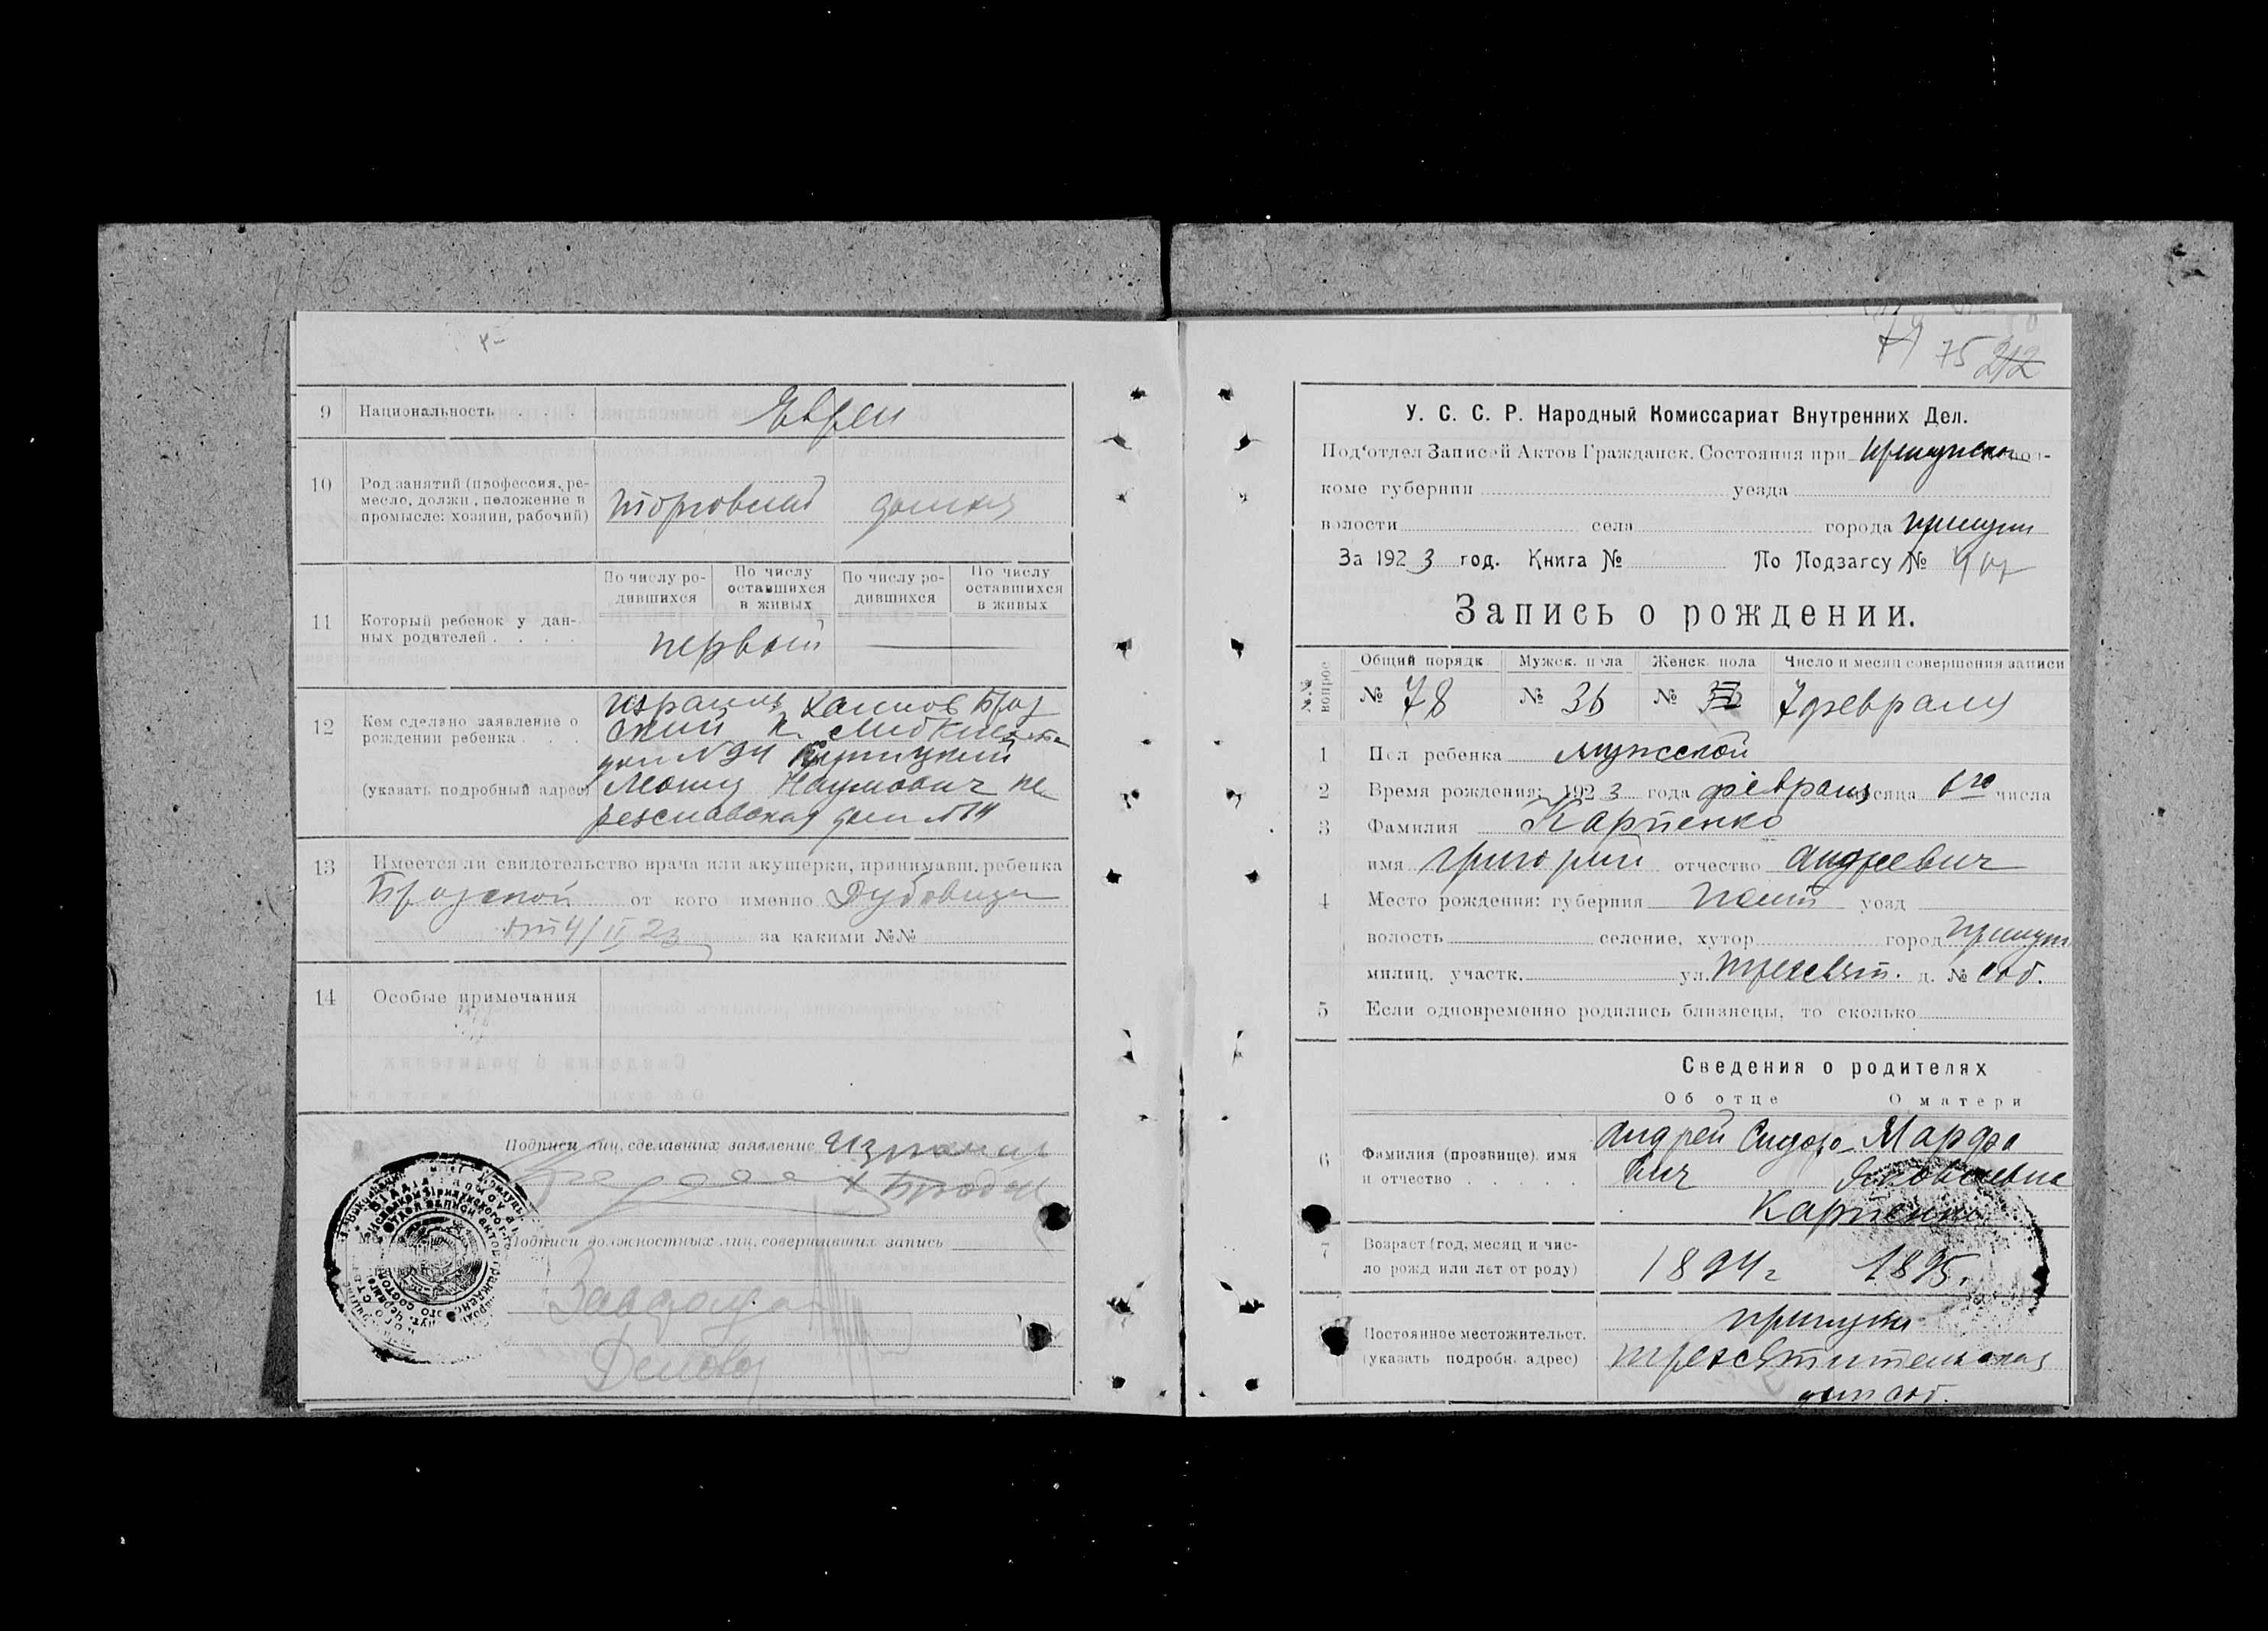 9 Национальность . . . . Евреи
10 Род занятий (профессия, ре-
месло, должн., положение в
промысле: хозяин, рабочий) торговый домаш
11 Который ребенок у дан-
ных родителей . . . .
По числу ро-
дившихся
По числу
оставшихся
в живых
По числу ро-
дившихся
По числу
оставшихся
в живых
первый
12 Кем сделано заявление о
рождении ребенка . . .
(указать подробный адрес)
Израиль Хаимов Брод
ский
дом №94
Наумович Пе
реяславская дом №14
13 Имеется ли свидетельство врача или акушерки, принимавш. ребенка
Бродской от кого именно
4/II 23 за какими №№
14 Особые примечания
Подписи лиц, сделавших заявление Израиль
Бродск
Подписи должностных лиц, совершивших запись
Завподзаг
Делов
75 212
У. С. С. Р. Народный Комиссариат Внутренних Дел.
Под'отдел Записей Актов Гражданск. Состояния при
коме губернии уезда
волости села города Прилуки
За 1923 год. Книга № По Подзагсу №
Запись о рождении.
№№ вопрос
Общий порядк. Мужск. пола Женск. пола Число и месяц совершения записи
№ 78 № 36 № 7 февраля
1 Пол ребенка мужской
2 Время рождения: 1923 года февраля месяца 6го числа
3 Фамилия Карпенко
имя Григорий отчество Андреевич
4 Место рождения: губерния Полт уезд
волость селение, хутор город Прилуки
милиц. участк. ул. Трехсвят. д. № соб.
5 Если одновременно родились близнецы, то сколько
Сведения о родителях
Об отце О матери
6 Фамилия (прозвище), имя
и отчество . . . . .
Андрей Сидоро- Марфа
вич Яковлевна
Карпенко
7 Возраст (год, месяц и чис-
ло рожд. или лет от роду) 1894г 1895.
Постоянное местожительст.
(указать подробн. адрес)
Прилуки
Трехсвятительская
дом соб.